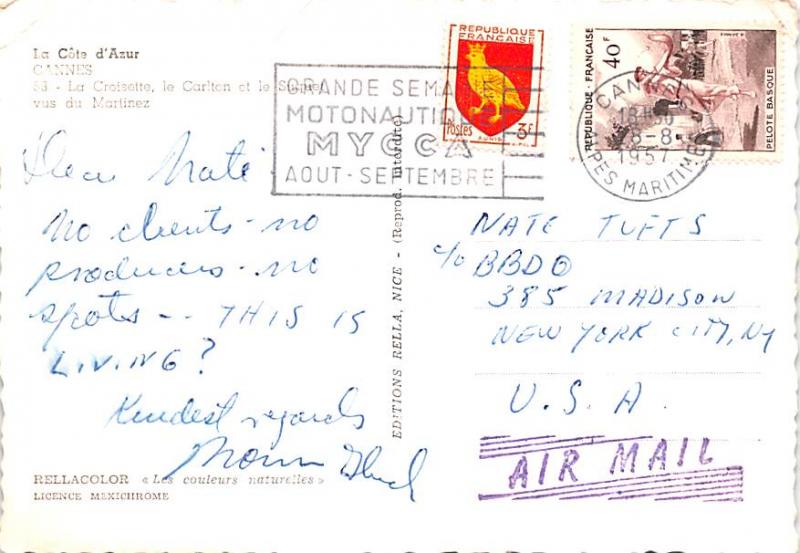 La Côte d'Azur
CANNES
53 - La Croisette, le Carlton et le
vus du Martinez
GRANDE SEMA
MOTONAUTIQUE
MYCCA
AOUT - SEPTEMBRE
REPUBLIQUE
FRANÇAISE
Postes 3F
AUNIS
REPUBLIQUE - FRANÇAISE
40F
PELOTE BASQUE
CANNES
18H30
8-8
1957
ALPES MARITIMES
Dear Nate
No clients - no
producers - no
spots -- THIS IS
LIVING?
Kindest regards
NATE TUFTS
c/o BBDO
385 MADISON
NEW YORK CITY, NY
U.S.A.
AIR MAIL
EDITIONS RELLA, NICE - (Reprod. interdite)
RELLACOLOR « Les couleurs naturelles »
LICENCE MEXICHROME